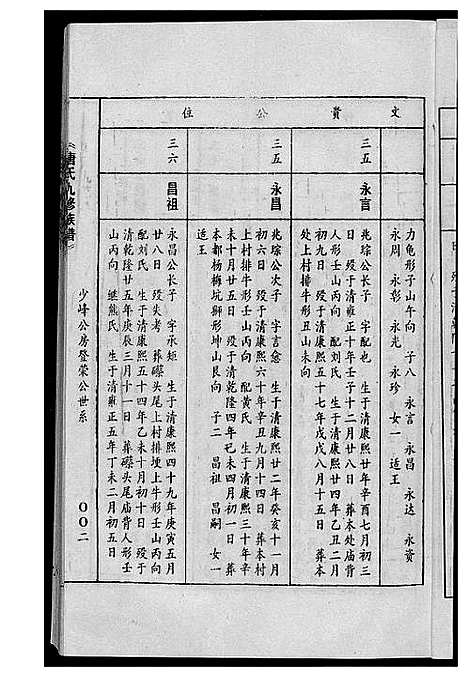 文贵公位
力龟形子山午向 子八 永言 永昌 永达 永资
永周 永彰 永光 永珍 女一 适王
三五 永言
兆琮公长子 字配也 生于清康熙廿年辛酉七月初三
日 殁于清雍正十年壬子十二月廿八日 葬本处庙背
人形壬山丙向 配刘氏 生于清康熙廿四年乙丑二月
初九日 殁于清康熙五十七年戊戌八月十五日 葬本
处上村排牛形丑山未向
三五 永昌
兆琮公次子 字言愈 生于清康熙廿二年癸亥十一月
初六日 殁于清康熙六十年辛丑九月十四日 葬本村
上村排牛形壬山丙向 配黄氏 生于清康熙三十年辛
未十月廿五日 殁于清乾隆四年己未四月初一日 葬
本都杨梅坑狮形坤山艮向 子二 昌祖 昌嗣 女一
适王
三六 昌祖
永昌公长子 字承矩 生于清康熙四十九年庚寅五月
廿八日 殁失考 葬磜头尾上村排坡上牛形壬山丙向
配刘氏 生于清康熙五十四年乙未十月初十日 殁于
清乾隆廿五年庚辰三月十一日 葬磜头尾庙背人形壬
山丙向 继熊氏 生于清雍正五年丁未二月初五日
《唐氏九修族谱》
少峰公房登荣公世系
〇〇二